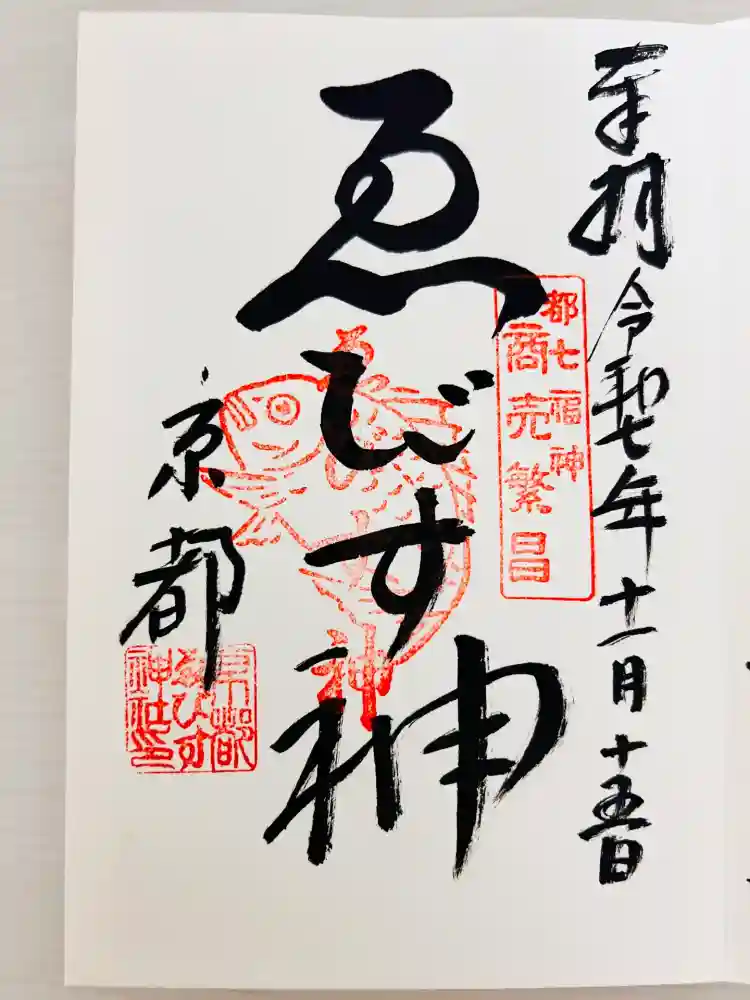 奉拝 令和七年十一月十五日
都七福神
商売繁昌
ゑびす神
京都
京都
ゑびす
神社印